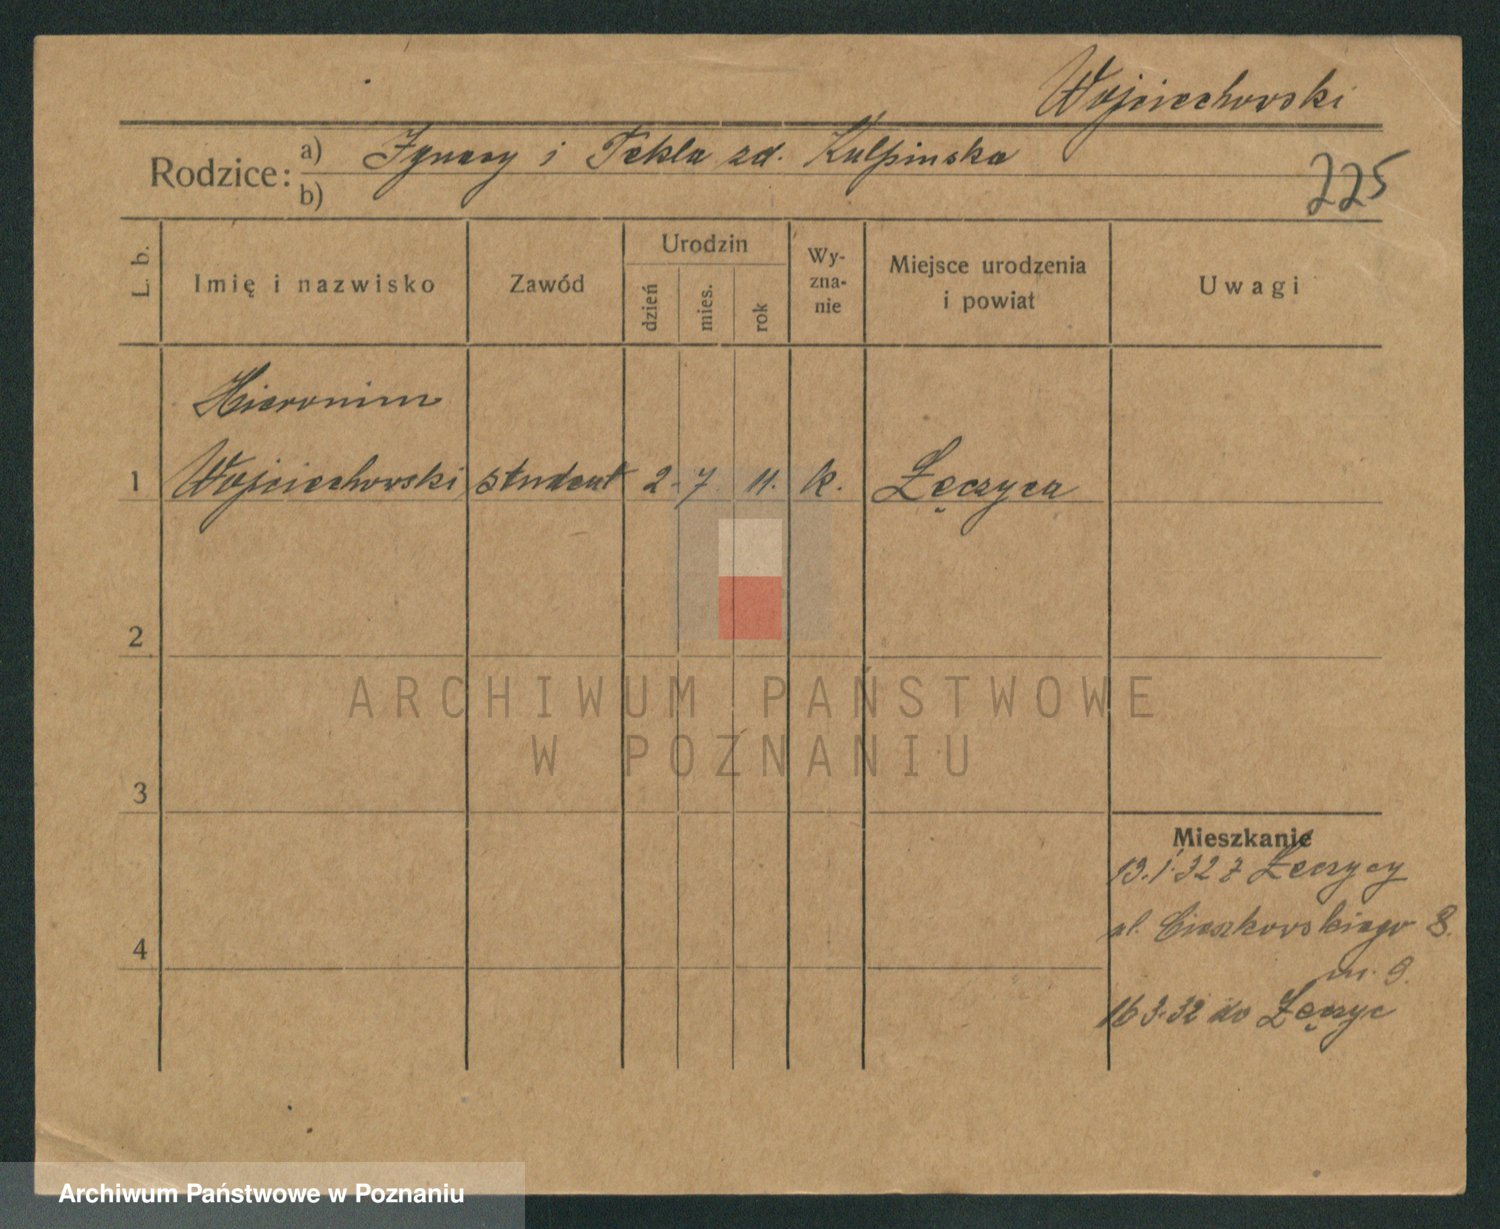 Wojciechowski
Rodzice: a) Ignacy i Tekla zd. Kulpinska
b)
225
L. b.
Imię i nazwisko
Zawód
Urodzin
dzień
mies.
rok
Wy-
zna-
nie
Miejsce urodzenia
i powiat
Uwagi
Hieronim
1 Wojciechowski student 2. 7. 11. k. Łęczyca
2
ARCHIWUM PAŃSTWOWE
W POZNANIU
3
Mieszkanie
13.1.32 z Łęczycy
4 ul. Cieszkowskiego 8.
m. 9.
16 3.32 do Łęczyc
Archiwum Państwowe w Poznaniu